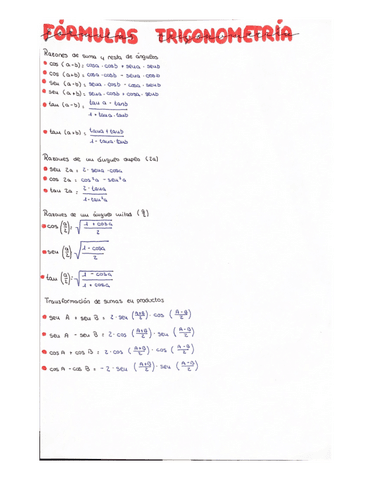 FÓRMULAS TRIGONOMETRÍA
Razones de suma y resta de ángulos
• cos (a-b) = cosa · cosb + sena · senb
• cos (a+b) = cosa · cosb - sena · senb
• sen (a-b) = sena · cosb - cosa · senb
• sen (a+b) = sena · cosb + cosa · senb
• tan (a-b) = (tan a - tanb) / (1 + tana · tanb)
• tan (a+b) = (tana + tanb) / (1 - tana · tanb)
Razones de un ángulo duplo (2a)
• sen 2a = 2 · sena · cosa
• cos 2a = cos²a - sen²a
• tan 2a = (2 · tana) / (1 - tan²a)
Razones de un ángulo mitad (a/2)
• cos (a/2) = √((1 + cosa) / 2)
• sen (a/2) √((1 - cosa) / 2)
• tan (a/2) = √((1 - cosa) / (1 + cosa))
Transformación de sumas en productos
• sen A + sen B = 2 · sen ((A+B)/2) · cos ((A-B)/2)
• sen A - sen B = 2 · cos ((A+B)/2) · sen ((A-B)/2)
• cos A + cos B = 2 · cos ((A+B)/2) · cos ((A-B)/2)
• cos A - cos B = -2 · sen ((A+B)/2) · sen ((A-B)/2)